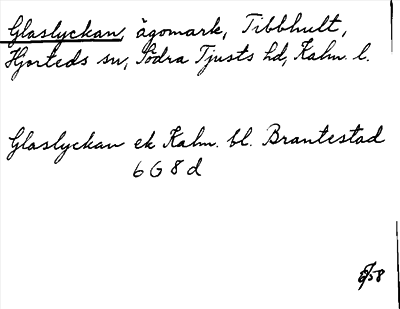 Glaslyckan, ägomark, Tibbhult,
Hjorteds sn, Södra Tjusts hd, Kalm. l.
Glaslyckan ek Kalm. bl. Brantestad
6 G 8 d